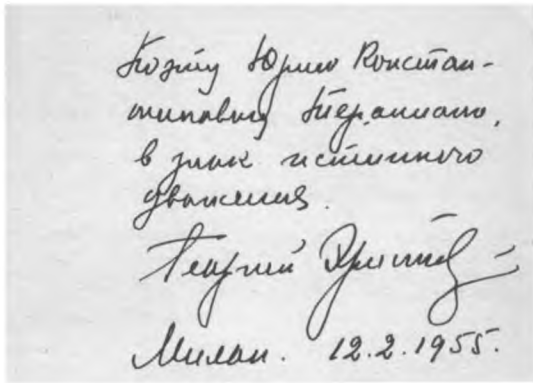 Поэту Юрию Констан-
тиновичу Терапиано,
в знак истинного
уважения.
Георгий Эристов
Милан. 12.2.1955.